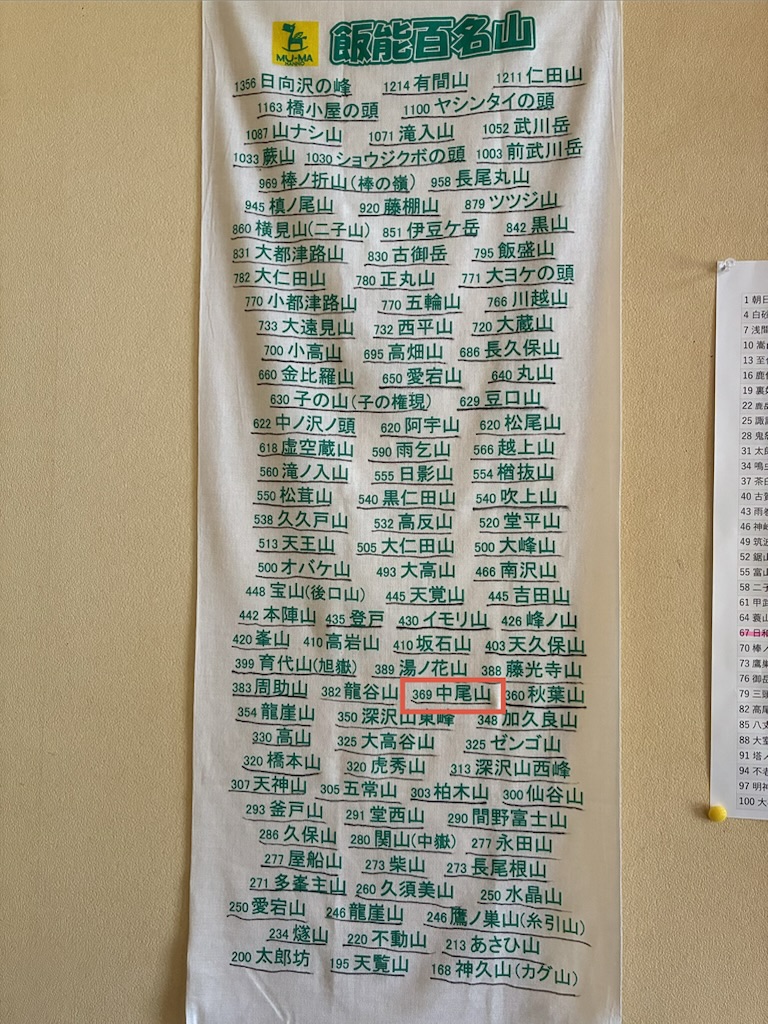 MU-MA
HANNO
飯能百名山
1356 日向沢の峰 1214 有間山 1211 仁田山
1163 橋小屋の頭 1100 ヤシンタイの頭
1087 山ナシ山 1071 滝入山 1052 武川岳
1033 蕨山 1030 ショウジクボの頭 1003 前武川岳
969 棒ノ折山(棒の嶺) 958 長尾丸山
945 槙ノ尾山 920 藤棚山 879 ツツジ山
860 横見山(二子山) 851 伊豆ケ岳 842 黒山
831 大都津路山 830 古御岳 795 飯盛山
782 大仁田山 780 正丸山 771 大ヨケの頭
770 小都津路山 770 五輪山 766 川越山
733 大遠見山 732 西平山 720 大蔵山
700 小高山 695 高畑山 686 長久保山
660 金比羅山 650 愛宕山 640 丸山
630 子の山(子の権現) 629 豆口山
622 中ノ沢ノ頭 620 阿宇山 620 松尾山
618 虚空蔵山 590 雨乞山 566 越上山
560 滝ノ入山 555 日影山 554 楢抜山
550 松茸山 540 黒仁田山 540 吹上山
538 久久戸山 532 高反山 520 堂平山
513 天王山 505 大仁田山 500 大峰山
500 オバケ山 493 大高山 466 南沢山
448 宝山(後口山) 445 天覚山 445 吉田山
442 本陣山 435 登戸 430 イモリ山 426 峰ノ山
420 峯山 410 高岩山 410 坂石山 403 天久保山
399 育代山(旭嶽) 389 湯ノ花山 388 藤光寺山
383 周助山 382 龍谷山 369 中尾山 360 秋葉山
354 龍崖山 350 深沢山東峰 348 加久良山
330 高山 325 大高谷山 325 ゼンゴ山
320 橋本山 320 虎秀山 313 深沢山西峰
307 天神山 305 五常山 303 柏木山 300 仙谷山
293 釜戸山 291 堂西山 290 間野富士山
286 久保山 280 関山(中嶽) 277 永田山
277 屋船山 273 柴山 273 長尾根山
271 多峯主山 260 久須美山 250 水晶山
250 愛宕山 246 龍崖山 246 鷹ノ巣山(糸引山)
234 燧山 220 不動山 213 あさひ山
200 太郎坊 195 天覧山 168 神久山(カグ山)
1 朝日
4 白砂
7 浅間
10 嵩
13 至
16 鹿
19 裏
22 鹿岳
25 諏
28 鬼
31 太
34 鳴
37 茶臼
40 古賀
43 雨巻
46 神
49 筑波
52 鋸山
55 富山
58 二子
61 甲武
64 蓑山
67 日和
70 棒ノ
73 鷹巣
76 御岳
79 三頭
82 高尾
85 八丈
88 大室
91 塔ノ
94 不老
97 明神
100 大